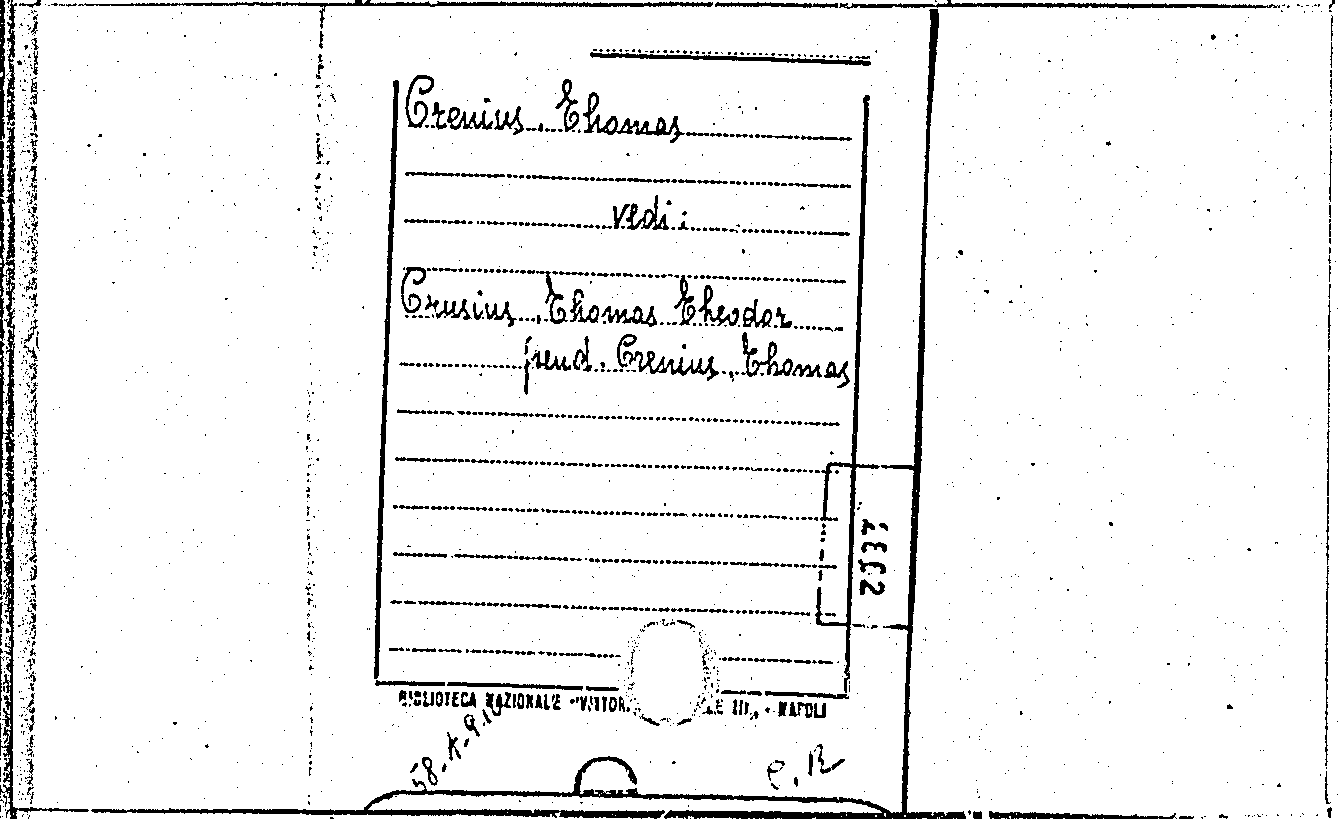 Crenius, Thomas
vedi:
Crusius, Thomas Theodor
pseud. Crenius, Thomas
BIBLIOTECA NAZIONALE "VITTOR LE III„ - NAPOLI
58-A-9